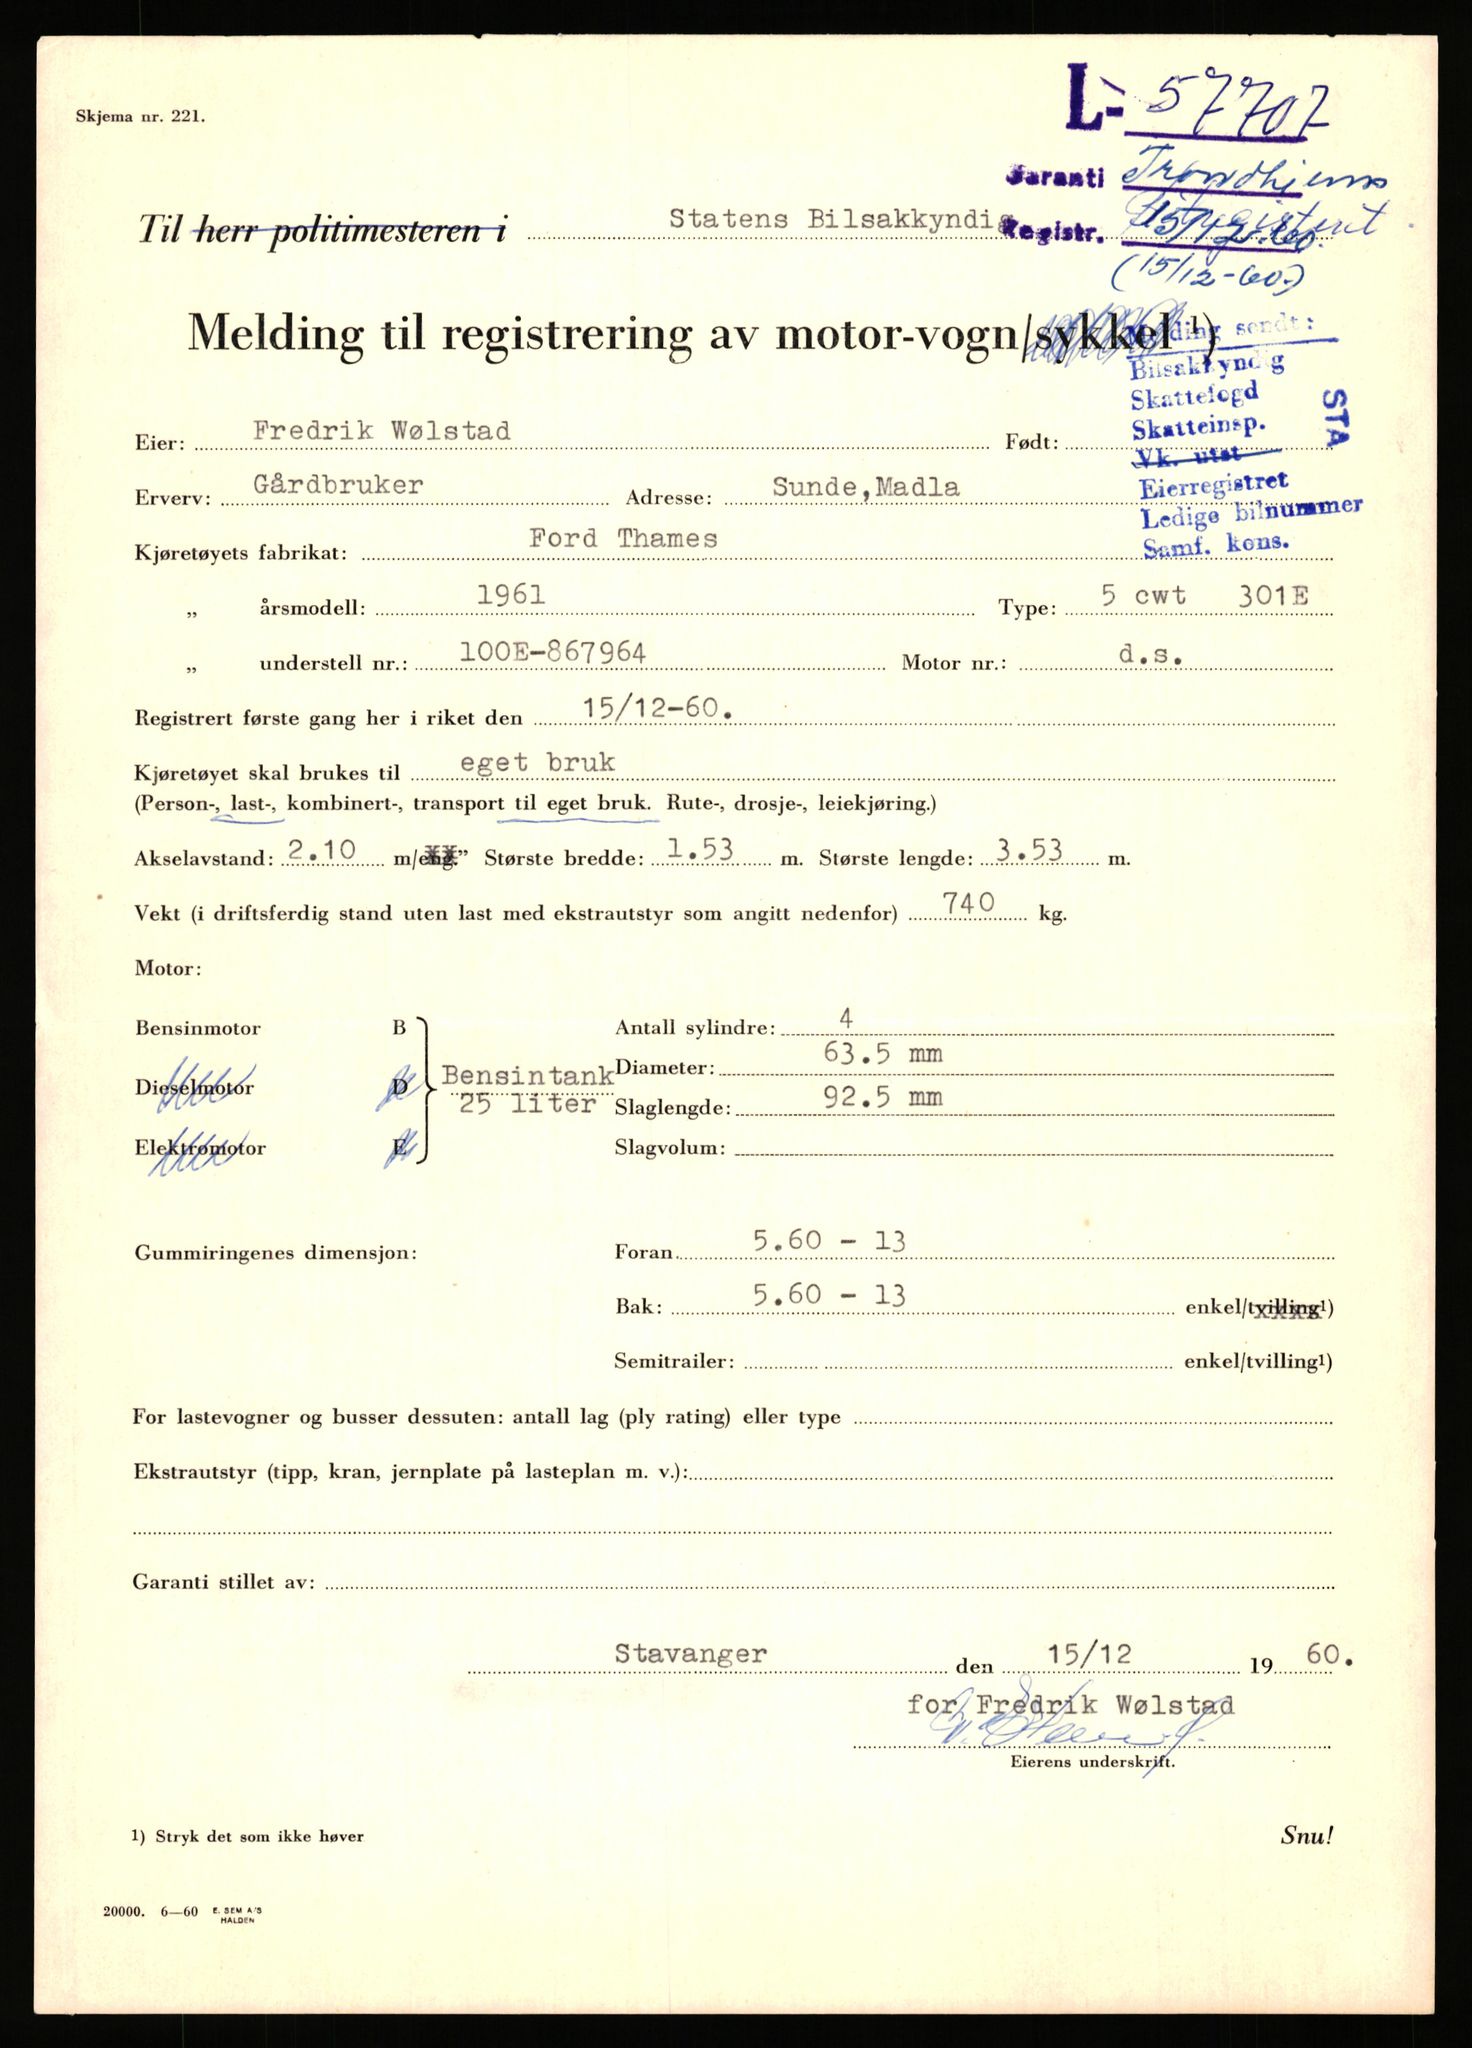 Skjema nr. 221.
L- 57707
Garanti Trondhjems
Til herr politimesteren i Statens Bilsakkyndig
Registr. 15/12-60.
(15/12-60.)
Melding til registrering av motor-vogn/sykkel 1)
Melding sendt:
Bilsakkyndig
Skattefogd
Skatteinsp.
Vk. utst
Eierregistret
Ledige bilnummer
Samf. kons.
STA
Eier: Fredrik Wølstad Født:
Erverv: Gårdbruker Adresse: Sunde, Madla
Kjøretøyets fabrikat: Ford Thames
„ årsmodell: 1961 Type: 5 cwt 301E
„ understell nr.: 100E-867964 Motor nr.: d.s.
Registrert første gang her i riket den 15/12-60.
Kjøretøyet skal brukes til eget bruk
(Person-, last-, kombinert-, transport til eget bruk. Rute-, drosje-, leiekjøring.)
Akselavstand: 2.10 m/eng.” Største bredde: 1.53 m. Største lengde: 3.53 m.
Vekt (i driftsferdig stand uten last med ekstrautstyr som angitt nedenfor) 740 kg.
Motor:
Bensinmotor B Antall sylindre: 4
Dieselmotor D Bensintank Diameter: 63.5 mm
25 liter Slaglengde: 92.5 mm
Elektromotor E Slagvolum:
Gummiringenes dimensjon: Foran 5.60 - 13
Bak: 5.60 - 13 enkel/tvilling1)
Semitrailer: enkel/tvilling1)
For lastevogner og busser dessuten: antall lag (ply rating) eller type
Ekstrautstyr (tipp, kran, jernplate på lasteplan m. v.):
Garanti stillet av:
Stavanger den 15/12 19 60.
for Fredrik Wølstad
Eierens underskrift.
1) Stryk det som ikke høver Snu!
20000. 6—60 E. SEM A/S
HALDEN